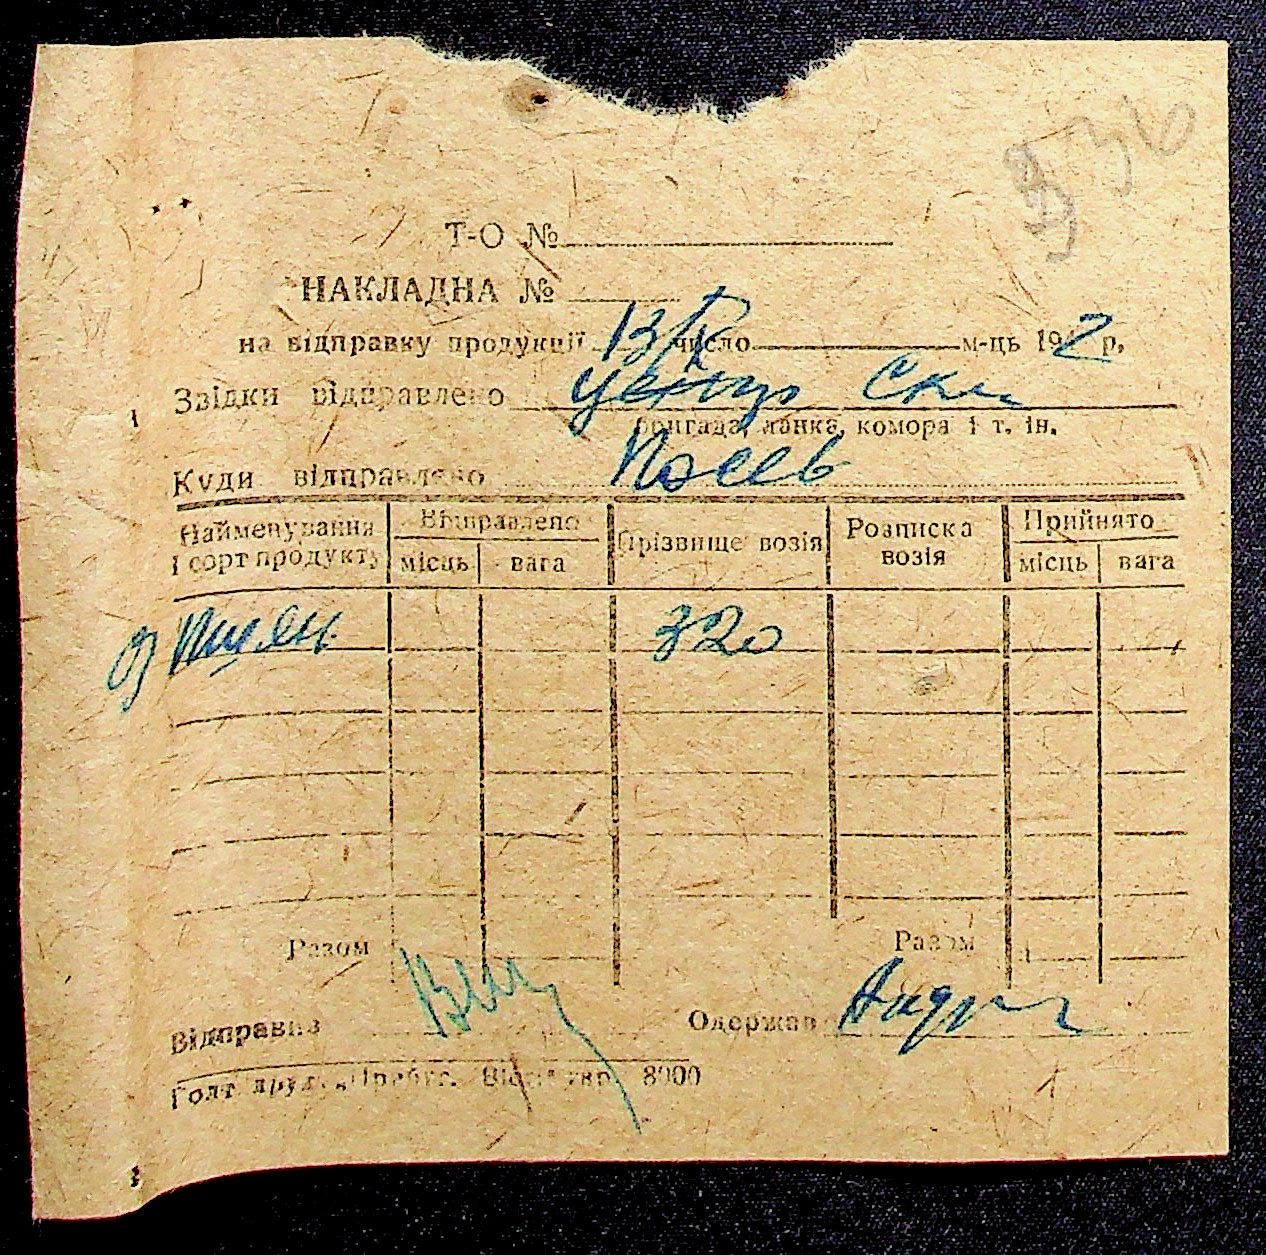 936
Т-О №
НАКЛАДНА №
на відправку продукції 13/X число м-ць 1942 р.
Звідки відправлено Центр Скл
бригада, ланка, комора і т. ін.
Куди відправлено Посев
Найменування і сорт продукту Відправлено місць вага Прізвище возія Розписка возія Прийнято місць вага
320
Разом Разом
Відправив Одержав
8000